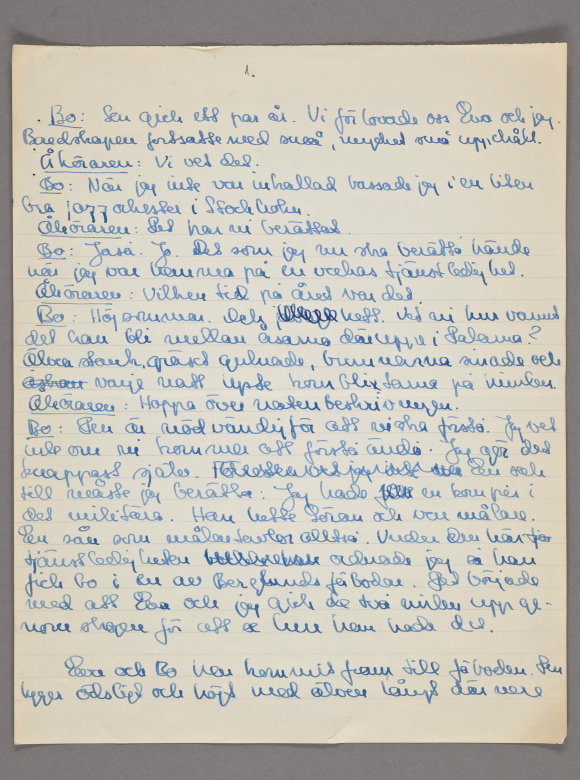 1.
Bo: Sen gick ett par år. Vi förlovade oss Eva och jag.
Beredskapen fortsatte med små, mycket små uppehåll.
Åhöraren: Vi vet det.
Bo: När jag inte var inkallad bassade jag i en liten
bra jazzorkester i Stockholm.
Åhöraren: Det har ni berättat.
Bo: Jaså. Jo. Det som jag nu ska berätta hände
när jag var hemma på en veckas tjänstledighet.
Åhöraren: Vilken tid på året var det.
Bo: Högsommar. Och hett. Vet ni hur varmt
det kan bli mellan åsarna däruppe i Dalarna?
Älven sjönk, gräset gulnade, brunnarna sinade och
varje natt uppe kornblixtarna på himlen.
Åhöraren: Hoppa över naturbeskrivningen.
Bo: Den är nödvändig för att ni ska förstå. Jag vet
inte om ni kommer att förstå ändå. Jag gör det
knappast själv. Men och
till måste jag berätta: Jag hade en kompis i
det militära. Han hette Göran och var målare.
En sån som målar tavlor alltså. Under den här
tjänstledigheten ordnade jag så han
fick bo i en av Berglunds fäbodar. Det började
med att Eva och jag gick de två milen upp ge-
nom skogen för att se hur han hade det.
Eva och Bo har kommit fram till fäboden. Den
ligger ödsligt och högt med älven långt där nere